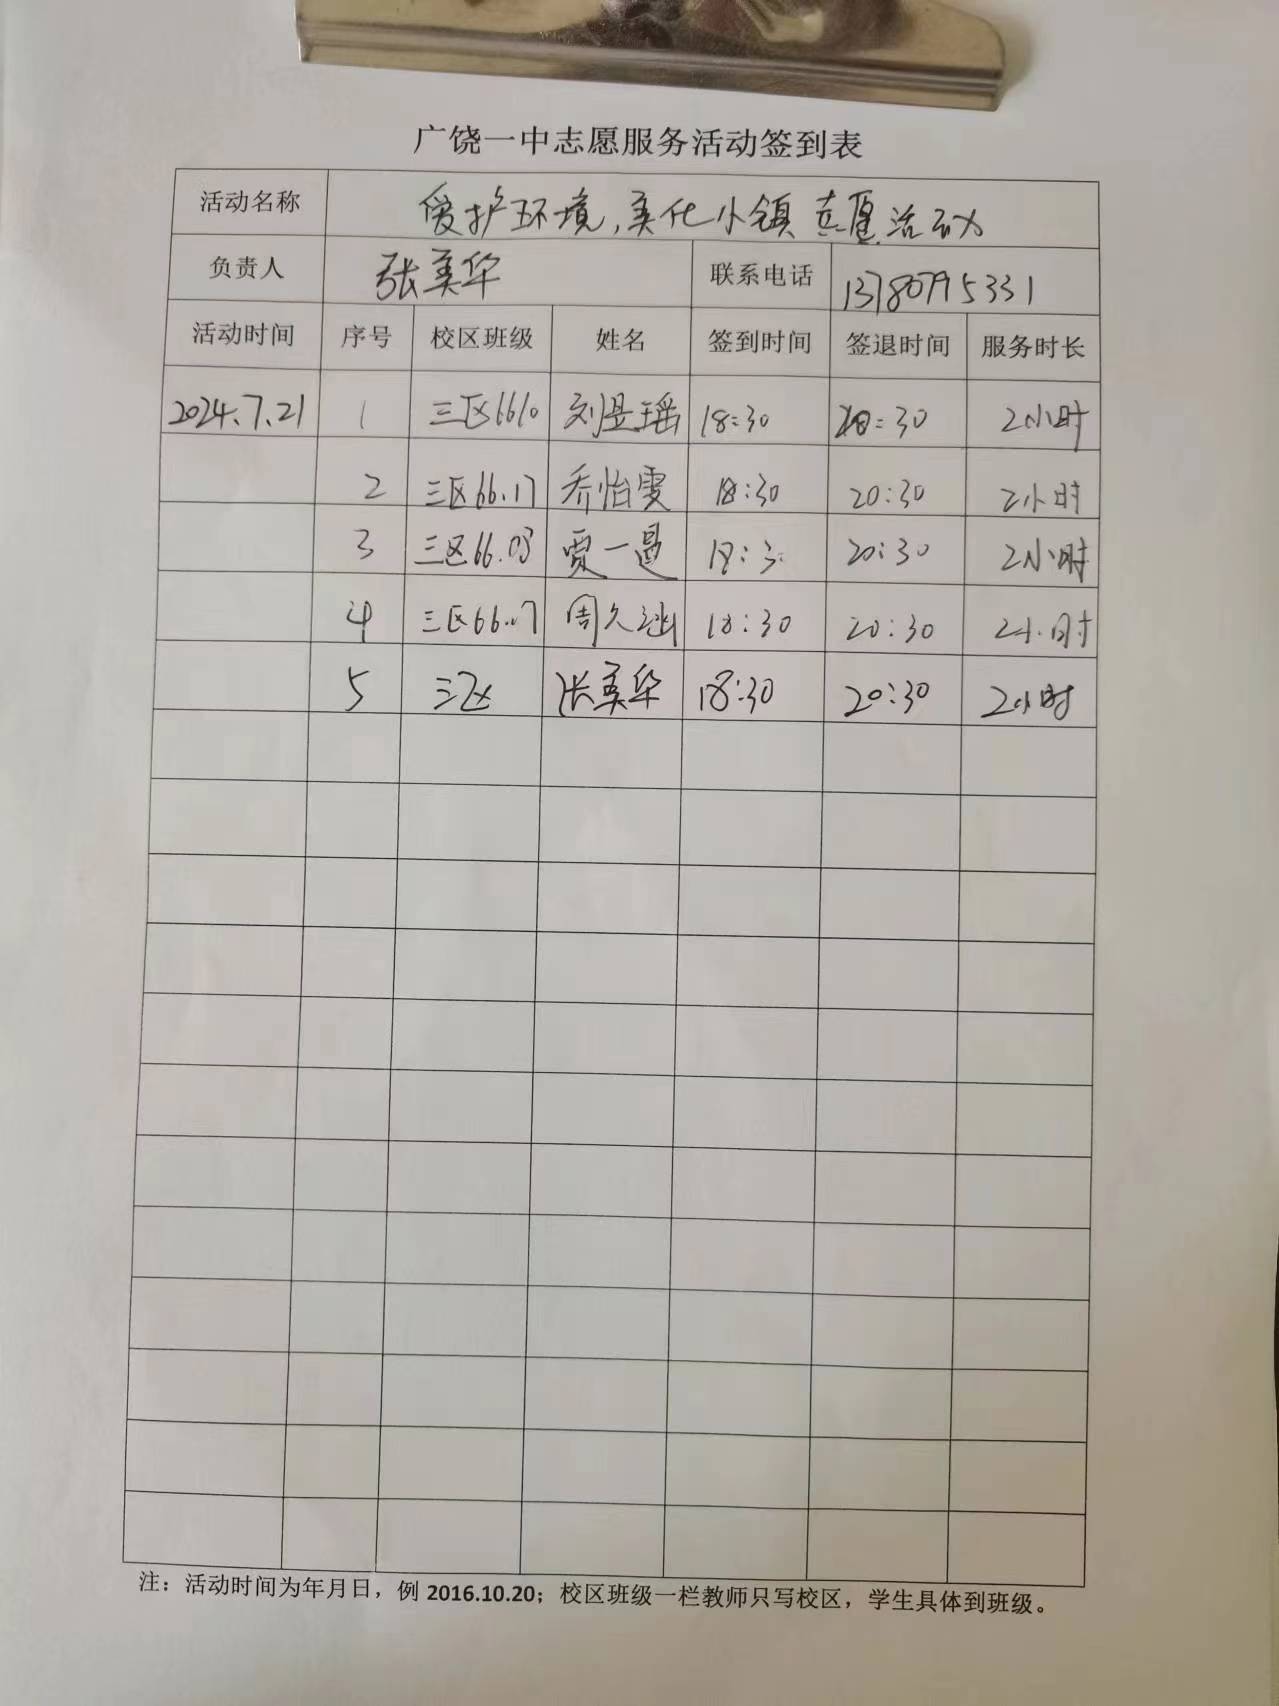 广饶一中志愿服务活动签到表
活动名称 爱护环境,美化小镇志愿活动
负责人 张美华 联系电话 13780795331
活动时间 序号 校区班级 姓名 签到时间 签退时间 服务时长
2024.7.21 1 三区6610 刘昱瑶 18:30 20:30 2小时
2 三区66.17 乔怡雯 18:30 20:30 2小时
3 三区66.03 贾一 18:3 20:30 2小时
4 三区66.07 周久涵 18:30 20:30 2小时
5 三区 张美华 18:30 20:30 2小时
注：活动时间为年月日，例 2016.10.20；校区班级一栏教师只写校区，学生具体到班级。